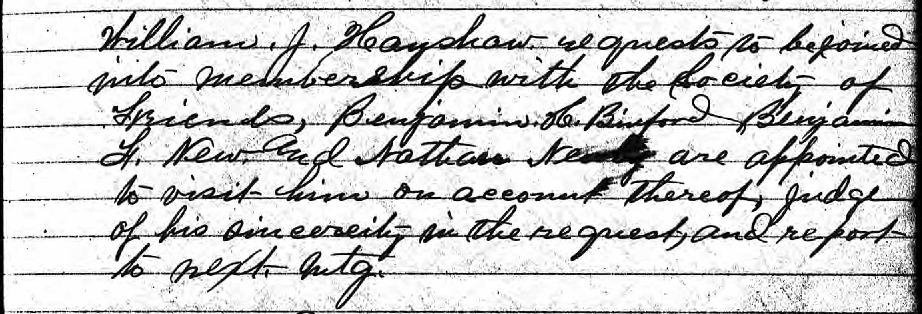 William. J. Hayshaw. requests to be joined
into membership with the Society of
Friends, Benjamin. H. Binford Benjamin
F. New. and Nathan Newby are appointed
to visit him on account thereof, judge
of his sincereity in the request, and report
to next. mtg.